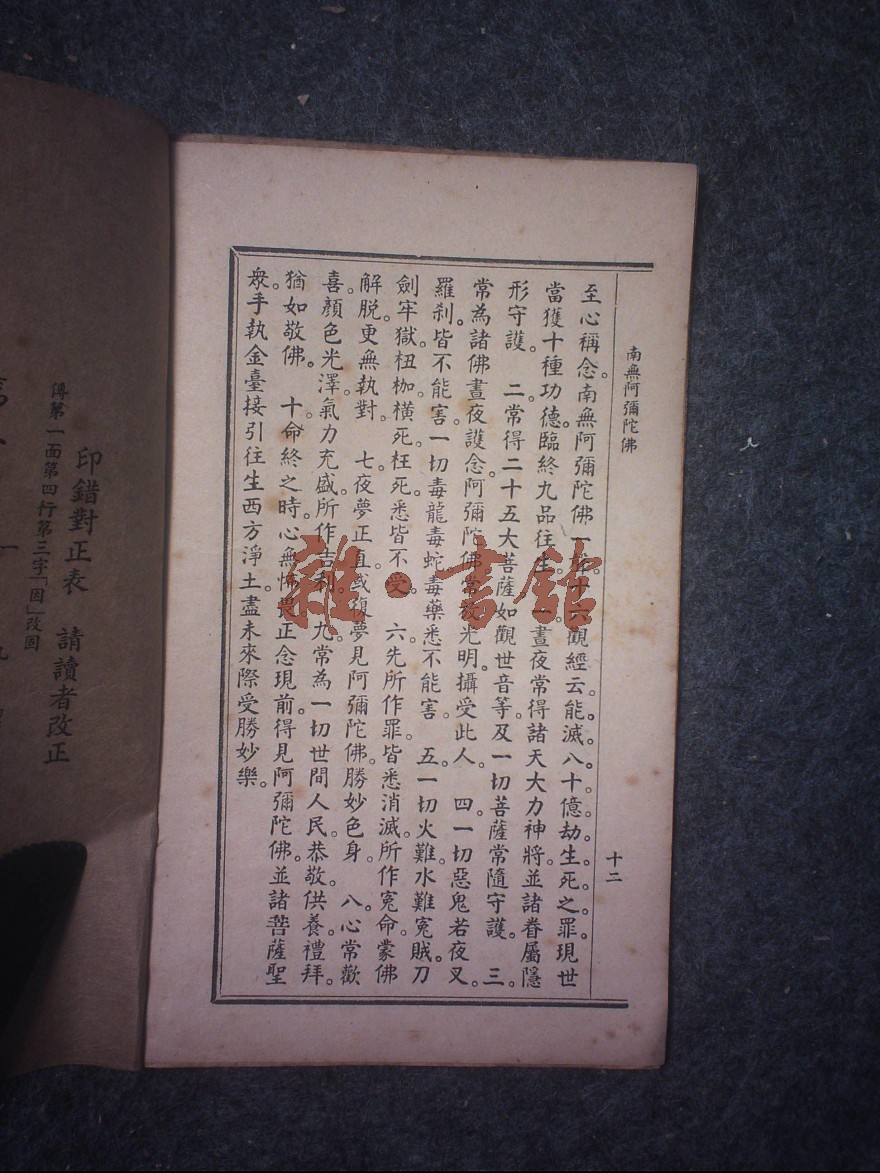 南無阿彌陀佛
十二
至心稱念。南無阿彌陀佛一聲。十六觀經云。能。滅。八。十。億。劫。生。死。之。罪。現世
當獲十種功德。臨終九品往生。一晝夜常得諸天大力神將。並諸眷屬隱
形守護。 二常得二十五大菩薩如觀世音等。及一切菩薩常隨守護。 三。
常為諸佛晝夜護念。阿彌陀佛常放光明。攝受此人。 四一切惡鬼若夜叉。
羅剎。皆不能害。一切毒龍毒蛇毒藥悉不能害。 五一切火難水難寃賊。刀
劍牢獄。杻枷橫死。枉死。悉皆不受。 六先所作罪皆悉消滅。所作寃命。蒙佛
解脫。更無執對。 七夜夢正直。或復夢見阿彌陀佛。勝妙色身。 八。心常歡
喜。顏色光澤。氣力充盛。所作吉利。 九常為一切世間人民。恭敬。供養。禮拜。
猶如敬佛。 十命終之時。心無怖畏。正念現前。得見阿彌陀佛。並諸菩薩聖
衆。手執金臺。接引往生西方淨土。盡未來際受勝妙樂。
印錯對正表 請讀者改正
第一面第四行第三字「因」改固
雜·書館